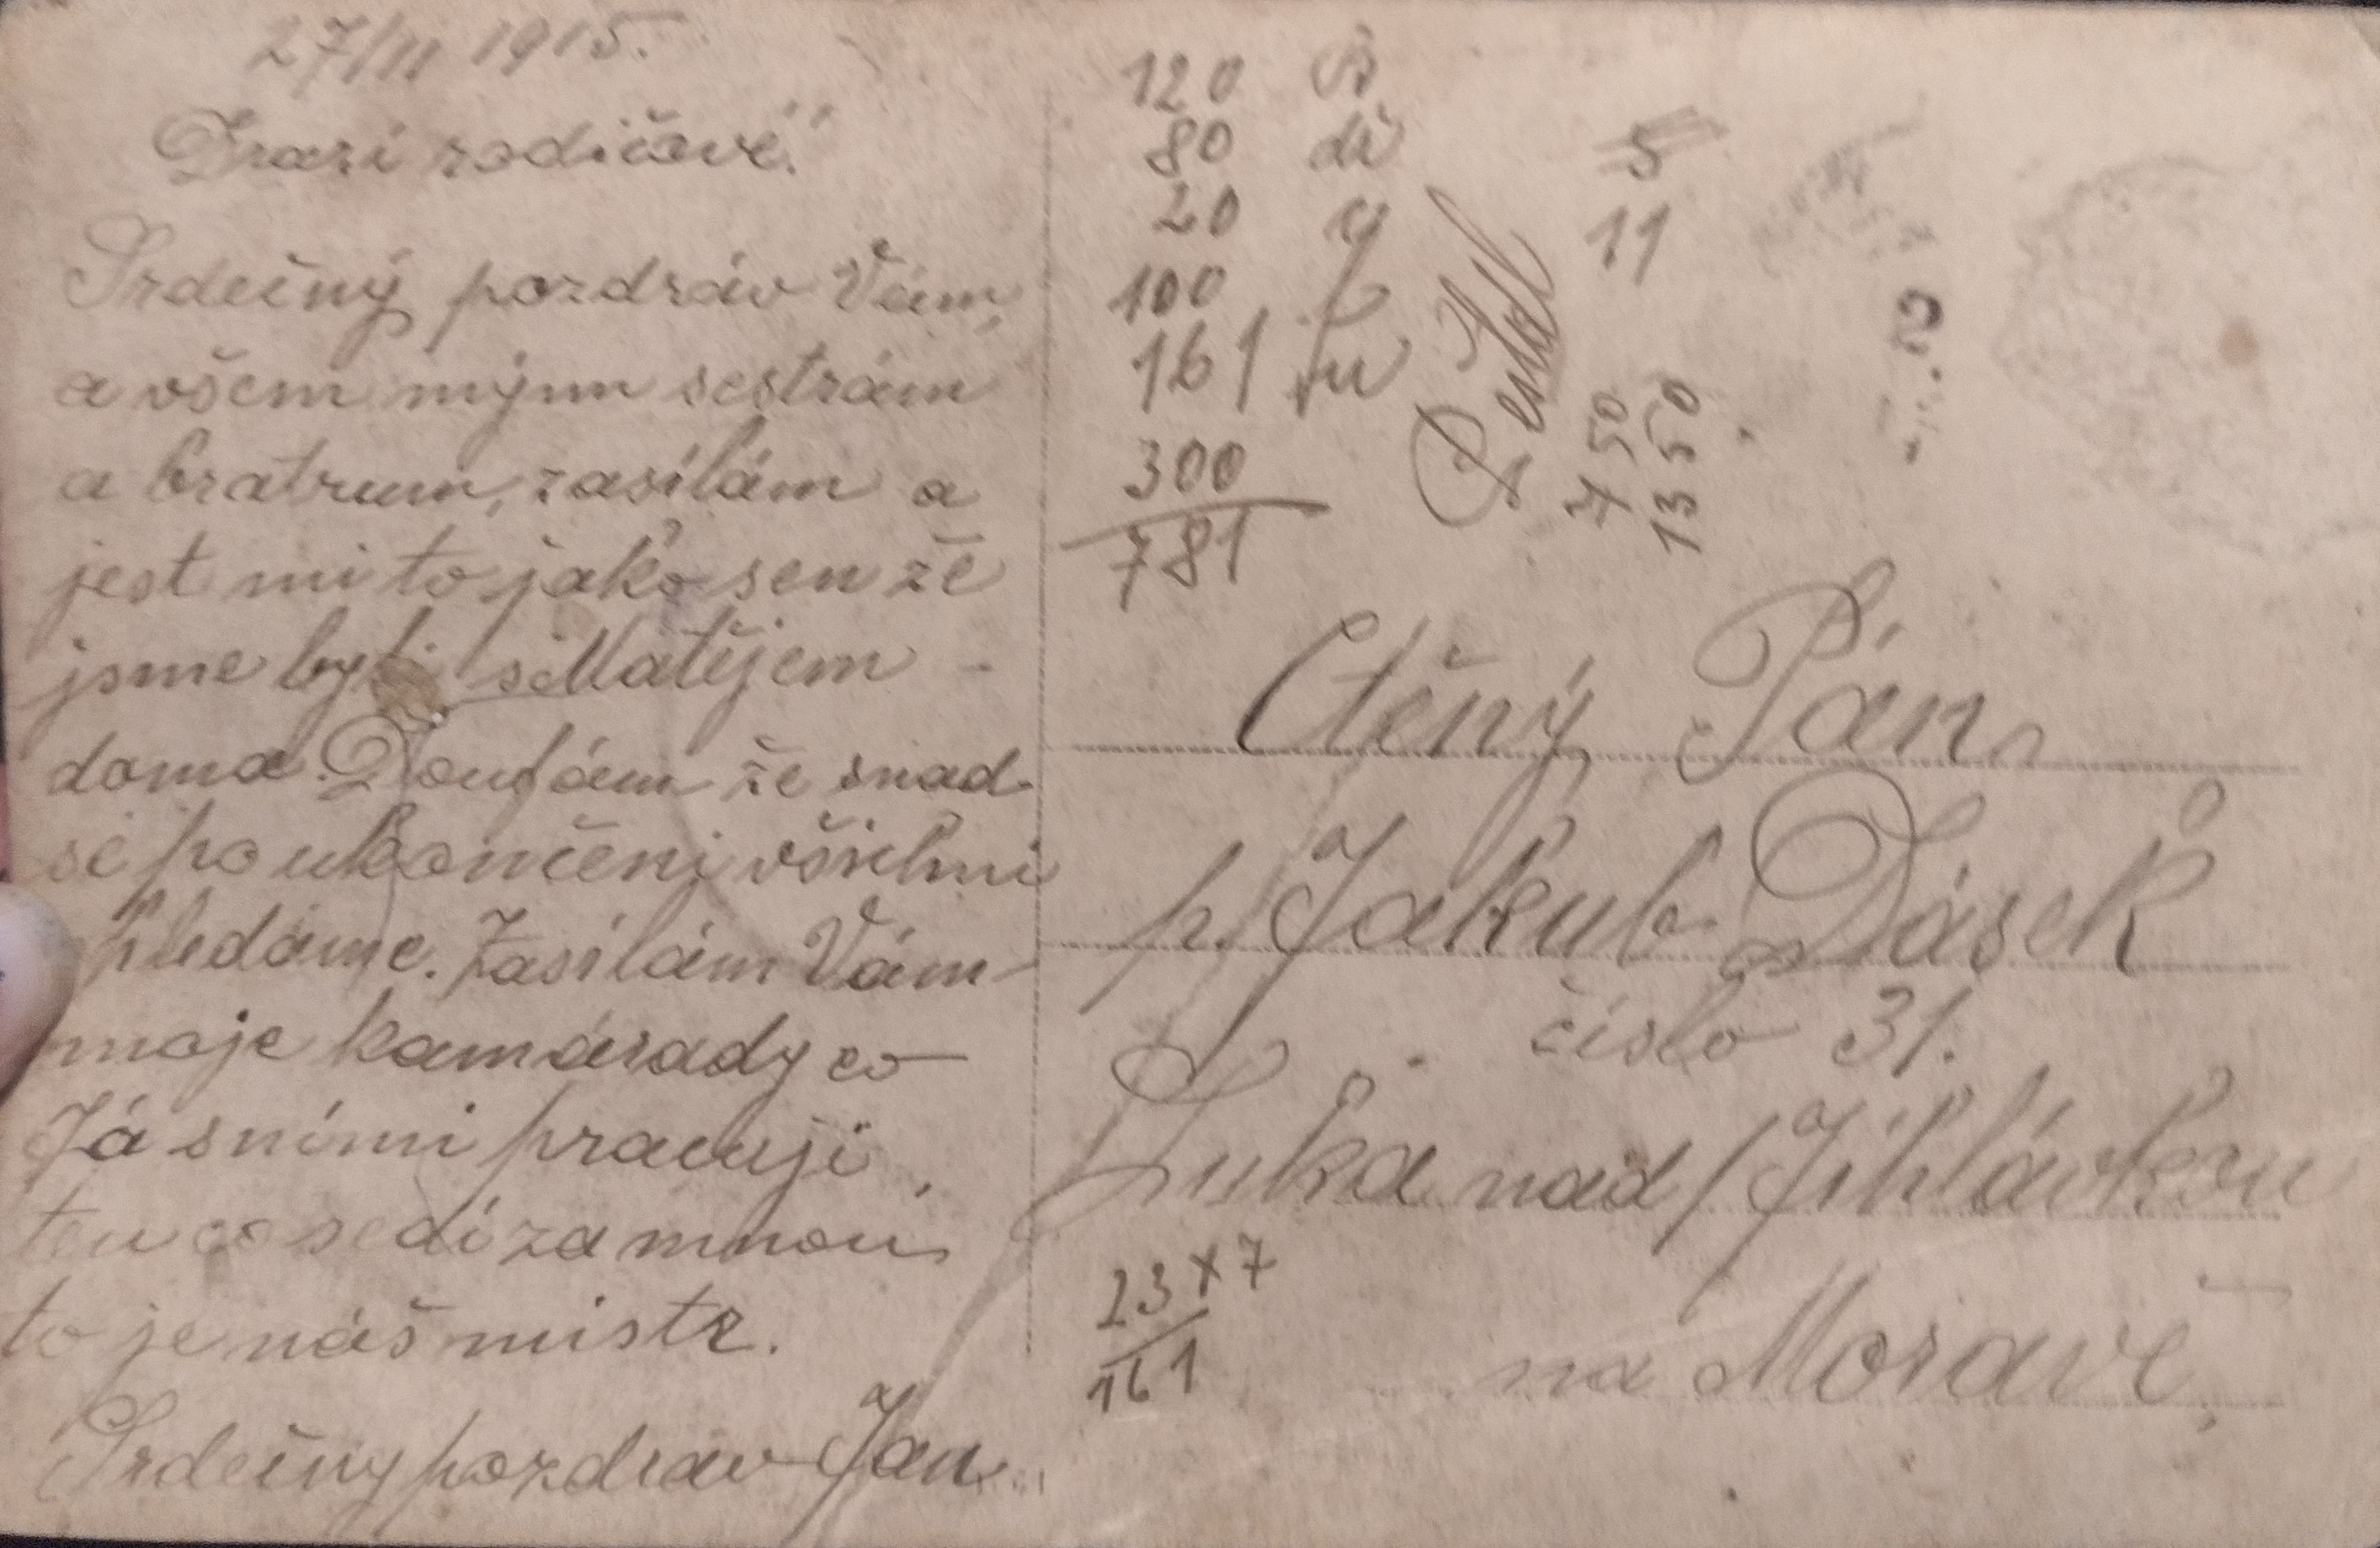 27/11 1915.
Drazí rodičové!"
Srdečný pozdráv Vám,
a všem mým sestrám
a bratrum, zasílám a
jest mi to jako sen že
jsme byli s Matějem
doma. Doufám že snad
se po ukončeni všichni
shledáme. Zasílám Vám
moje kamárady co
Já s ními pracuji,
ten co sedí za mnou
to je náš mistr.
Srdečny pozdrav Jan
120
80 di
20 y
100
161
300
781
5
11
7 50
13 50
Ctěný Pán
p. Jakub Dásek
číslo 31.
Luka nad/Jihlávkou
na Moravě,
23x7
161